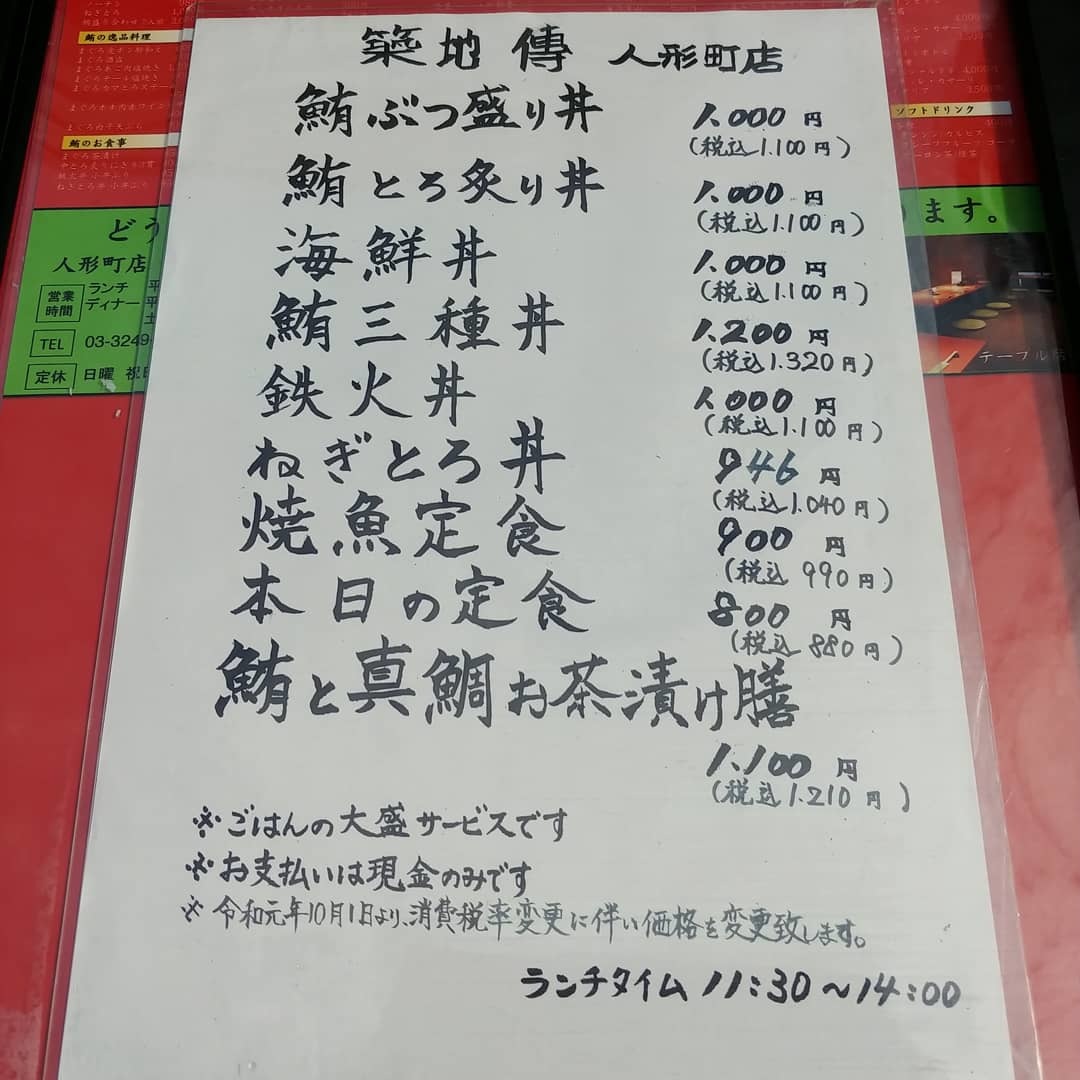 築地傳 人形町店
鮪ぶつ盛り丼 1.000円
(税込1.100円)
鮪とろ炙り丼 1.000円
(税込1.100円)
海鮮丼 1.000円
(税込1.100円)
鮪三種丼 1.200円
(税込1.320円)
鉄火丼 1.000円
(税込1.100円)
ねぎとろ丼 946円
(税込1.040円)
焼魚定食 900円
(税込990円)
本日の定食 800円
(税込880円)
鮪と真鯛お茶漬け膳
1.100円
(税込1.210円)
※ごはんの大盛サービスです
※お支払いは現金のみです
※令和元年10月1日より、消費税率変更に伴い価格を変更致します。
ランチタイム 11:30~14:00
鮪の逸品料理
鮪のお食事
まぐろ茶漬け
どう
人形町店
営業時間
ランチ 平
ディナー 平
土
TEL 03-3249-
定休 日曜 祝日
ソフトドリンク
ます。
テーブル席